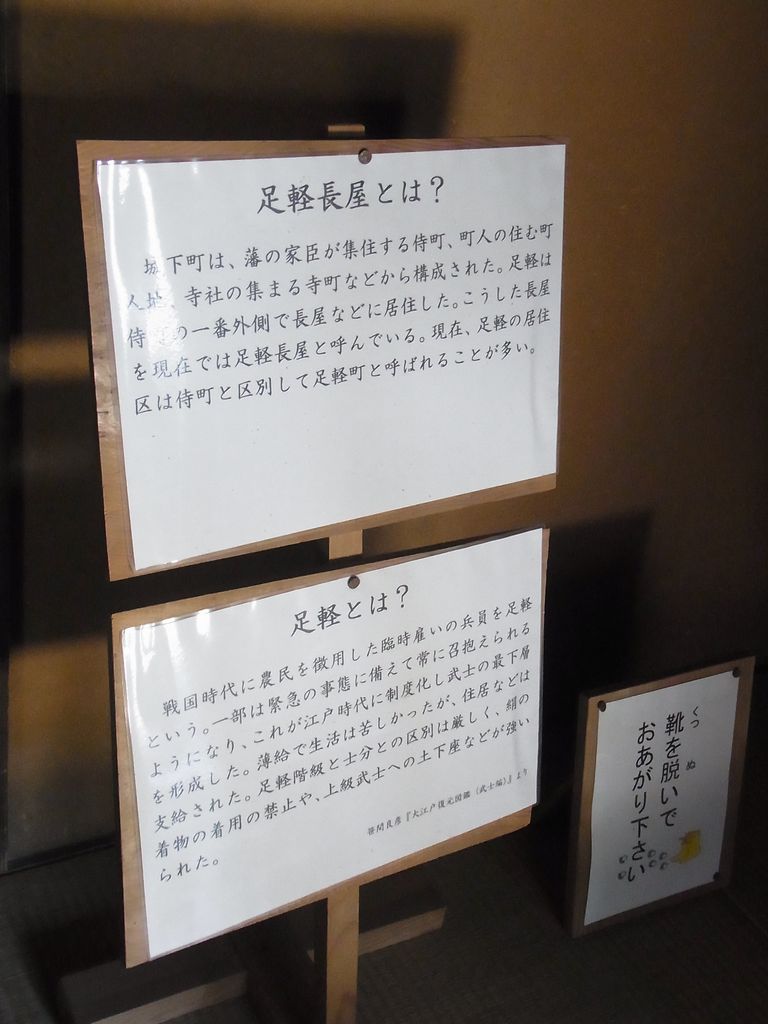 足軽長屋とは？
城下町は、藩の家臣が集住する侍町、町人の住む町
人地、寺社の集まる寺町などから構成された。足軽は
侍町の一番外側で長屋などに居住した。こうした長屋
を現在では足軽長屋と呼んでいる。現在、足軽の居住
区は侍町と区別して足軽町と呼ばれることが多い。
足軽とは？
戦国時代に農民を徴用した臨時雇いの兵員を足軽
という。一部は緊急の事態に備えて常に召抱えられる
ようになり、これが江戸時代に制度化し武士の最下層
を形成した。薄給で生活は苦しかったが、住居などは
支給された。足軽階級と士分との区別は厳しく、絹の
着物の着用の禁止や、上級武士への土下座などが強い
られた。
笹間良彦『大江戸復元図鑑（武士編）』より
靴を脱いで
くつ ぬ
おあがり下さい